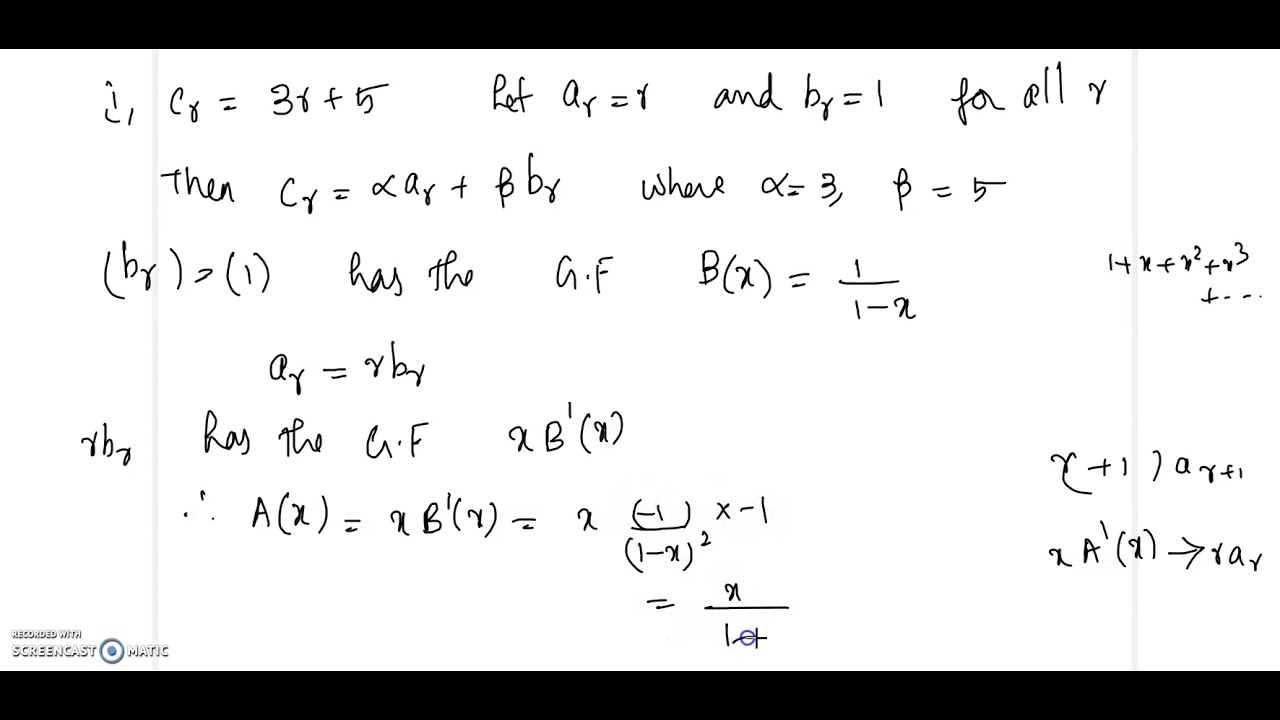 i, Cr = 3r + 5 Let ar = r and br = 1 for all r
Then Cr = αar + βbr where α = 3, β = 5
(br) = (1) has the G.F B(x) = 1/(1-x)
1 + x + x² + x³ + ...
ar = rbr
rbr has the G.F xB'(x)
r + 1 ) ar+1
∴ A(x) = xB'(x) = x (-1)/(1-x)² x -1
xA'(x) → rar
= x/1+
RECORDED WITH
SCREENCAST MATIC